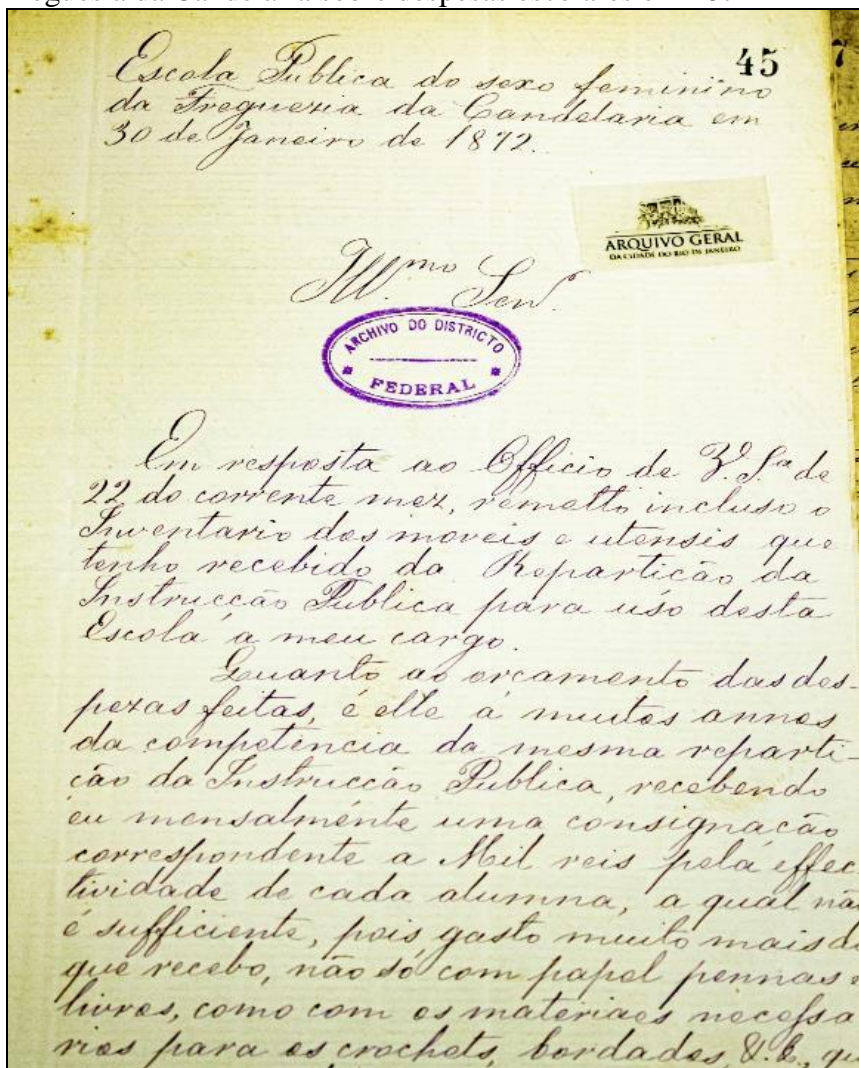 45
7
Escola Publica do sexo feminino
da Freguezia da Candelaria em
30 de Janeiro de 1872.
ARQUIVO GERAL
DA CIDADE DO RIO DE JANEIRO
Ill.mo Senr.
ARCHIVO DO DISTRICTO
FEDERAL
Em resposta ao Officio de V. S.ª de
22 do corrente mez, remetto incluso o
Inventario dos moveis e utensis que
tenho recebido da Repartição da
Instrucção Publica para uso desta
Escola a meu cargo.
Quanto ao orcamento das des-
pezas feitas, é elle á muitos annos
da competencia da mesma reparti-
cão da Instruccão Publica, recebendo
eu mensalménte uma consignacão
correspondente a Mil reis pela effec
tividade de cada alumna, a qual nã
é sufficiente, pois gasto muito mais d
que recebo, não só com papel pennas e
livros, como com os materiaes necessa
rios para os crochets, bordados, &.&., qu